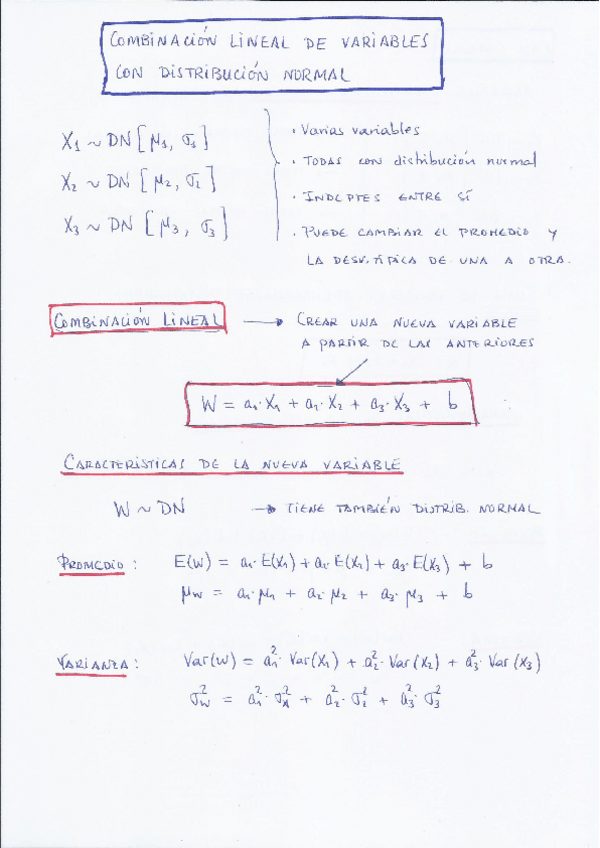 COMBINACIÓN LINEAL DE VARIABLES
CON DISTRIBUCIÓN NORMAL
X₁ ~ DN [μ₁, σ₁]
X₂ ~ DN [μ₂, σ₂]
X₃ ~ DN [μ₃, σ₃]
· Varias variables
· TODAS con distribución normal
· INDEPTES ENTRE SÍ
· PUEDE CAMBIAR EL PROMEDIO Y
LA DESV. TÍPICA DE UNA A OTRA.
COMBINACIÓN LINEAL → CREAR UNA NUEVA VARIABLE
A PARTIR DE LAS ANTERIORES
W = a₁·X₁ + a₂·X₂ + a₃·X₃ + b
CARACTERÍSTICAS DE LA NUEVA VARIABLE
W ~ DN → TIENE TAMBIÉN DISTRIB. NORMAL
PROMEDIO: E(W) = a₁·E(X₁) + a₂·E(X₂) + a₃·E(X₃) + b
μ_W = a₁·μ₁ + a₂·μ₂ + a₃·μ₃ + b
VARIANZA: Var(W) = a₁²·Var(X₁) + a₂²·Var(X₂) + a₃²·Var(X₃)
σ_W² = a₁²·σ₁² + a₂²·σ₂² + a₃²·σ₃²